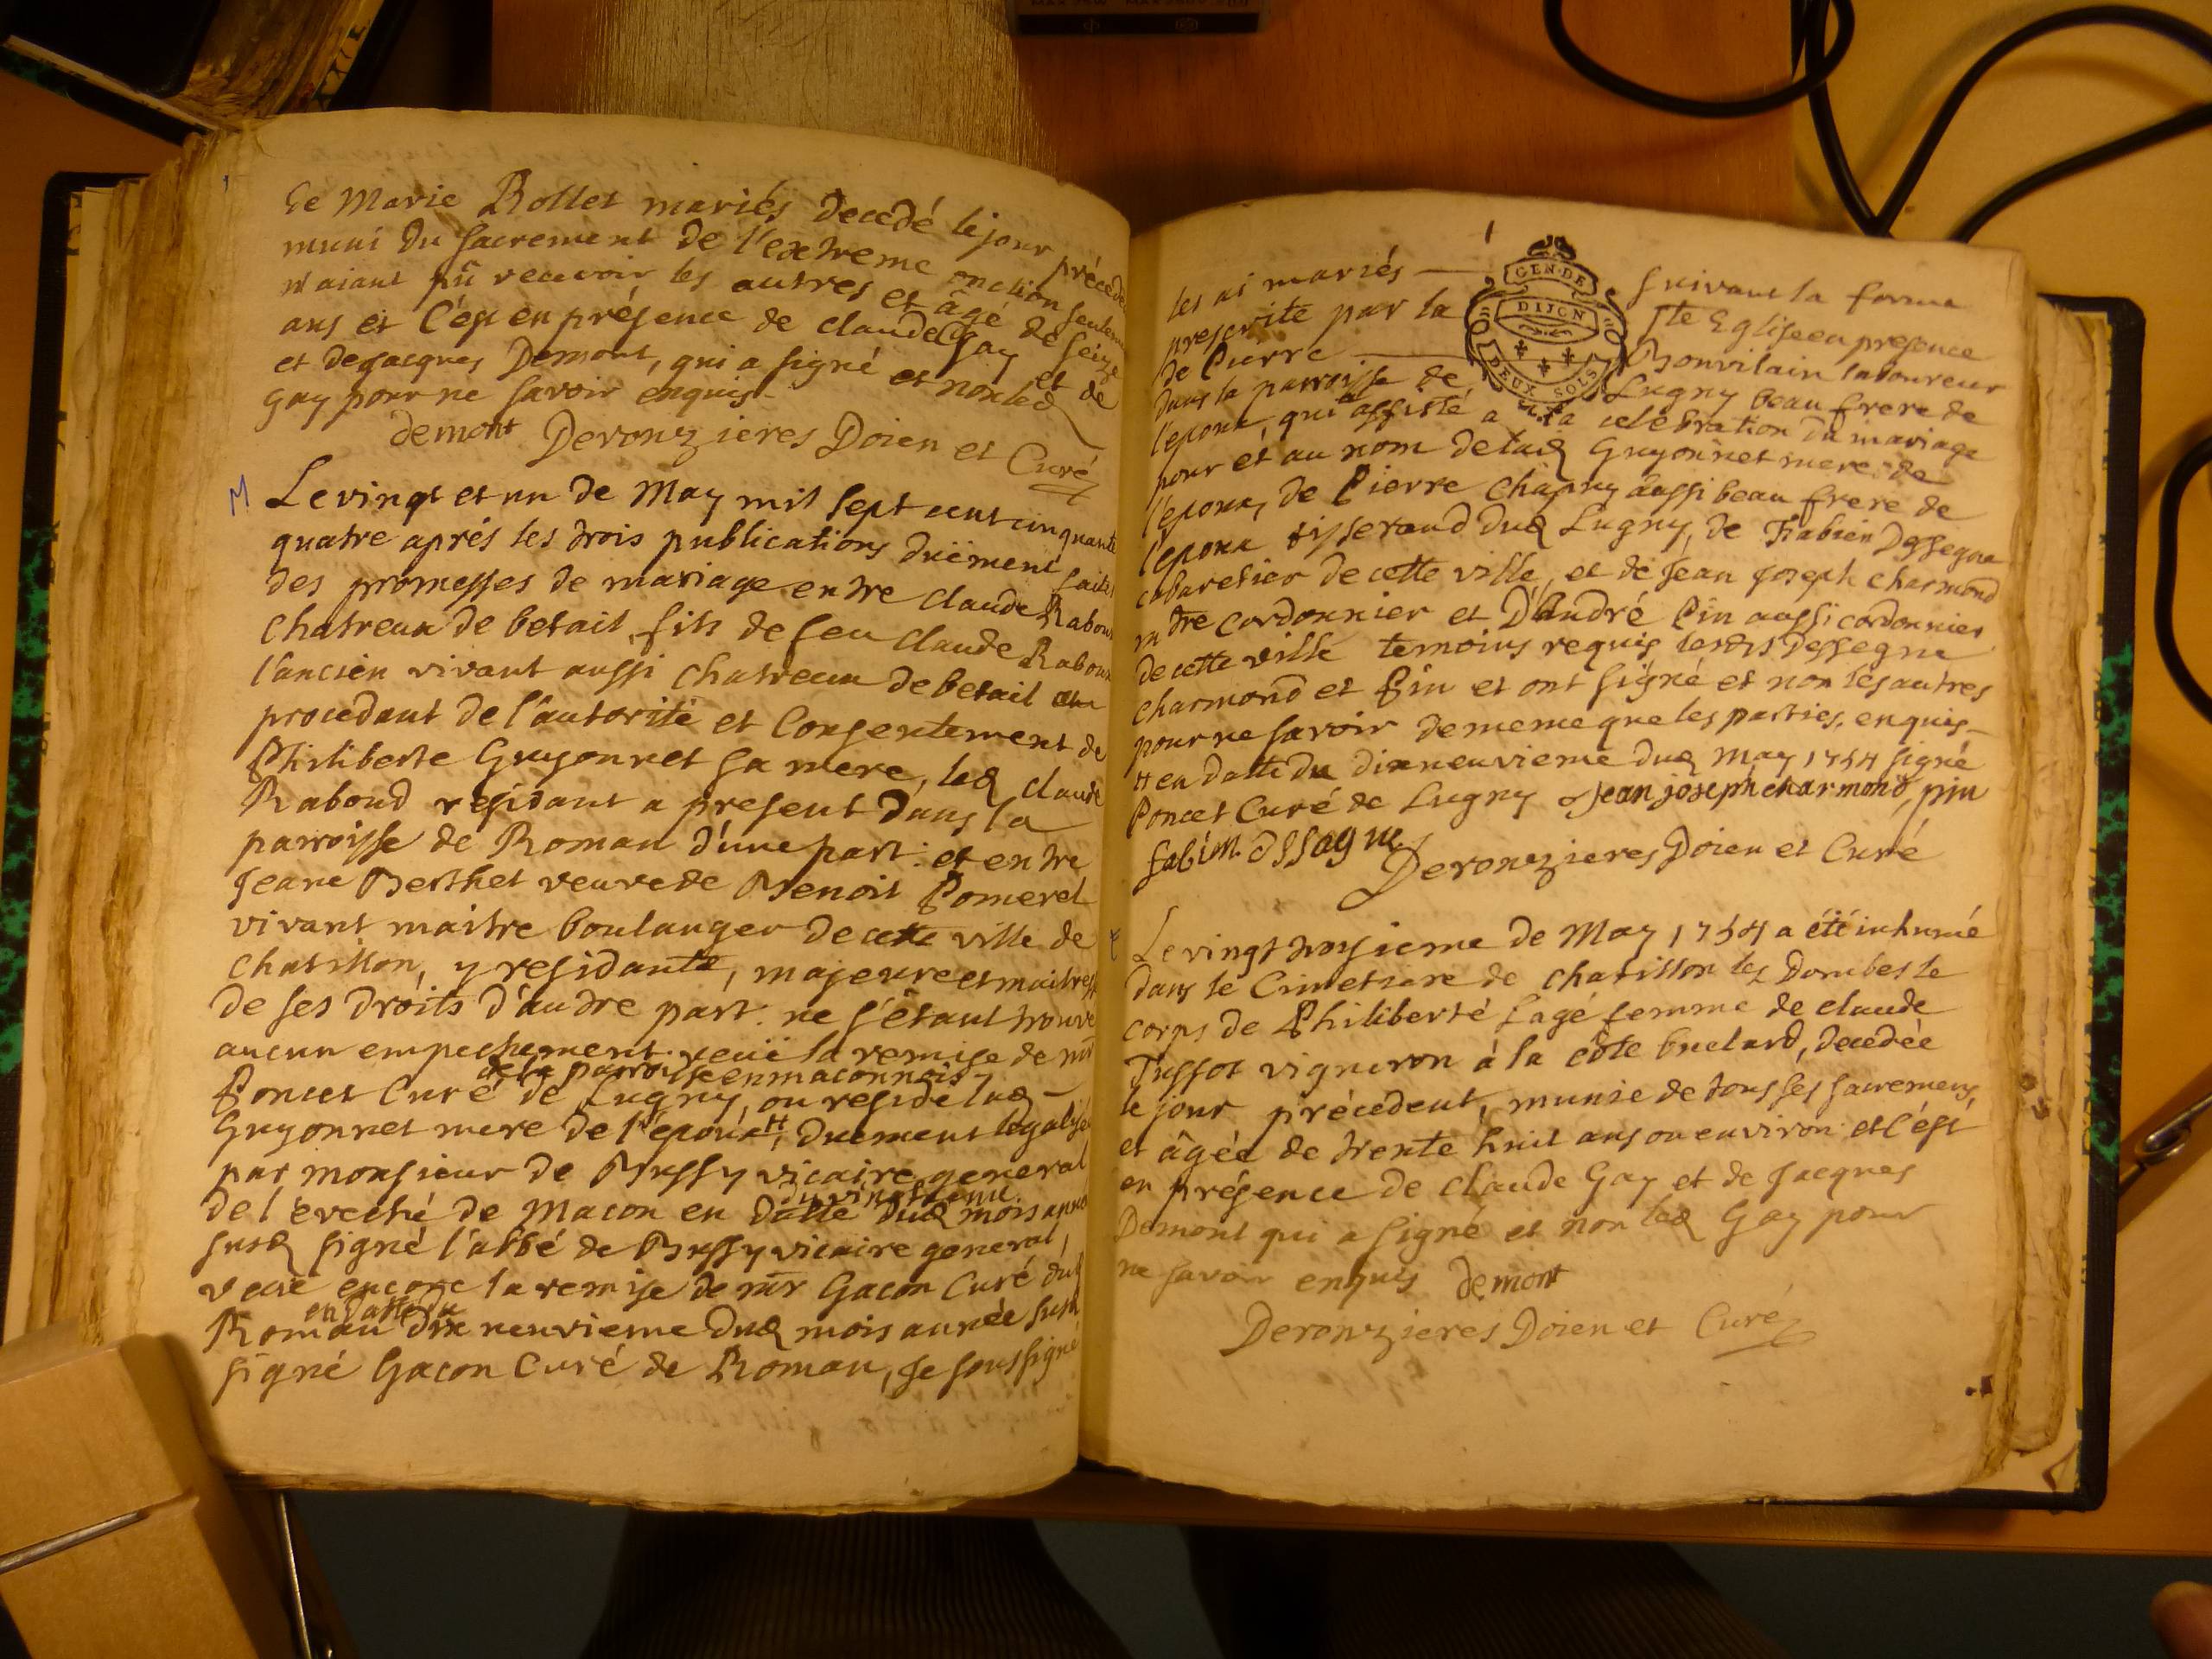 de Marie Rollet mariés decedé le jour précede
muni du sacrement de l'extreme onction seulem
n'aiant pû recevoir les autres et âgé de seize
ans et l'ést en présence de claude Gay et de
et de jacques Demont, qui a signé et non led
gay pour ne savoir enquis.
demont Deronzieres Doien et Curé
M
Le vingt et un de May mil sept cent cinquante
quatre aprés les trois publications duëment faites
des promesses de mariage entre claude Raboud
chatreux de betail, fils de feu claude Raboud
l'ancien vivant aussi chatreux de betail
procedant de l'autorité et consentement de
Philiberte Guyonnet sa mere, led claude
Raboud residant a present dans la
parroisse de Roman d'une part: et entre
Jeane Berthet veuve de Benoit Pomerel
vivant maitre boulanger de cette ville de
chatillon, y residante, majeure et maitresse
de ses droits d'autre part: ne s'étant trouvé
aucun empechement. veuë la remise de mr
de la parroisse en maconnois
Poncet Curé de Lugny, ou reside lad
Guyonnet mere de l'epoux H, duement legalisé
par monsieur de Bussy vicaire general
du vingtieme
de l'eveché de Macon en datte dud mois année
susd signé l'abbé de Bussy vicaire general,
veuë encore la remise de mr Gacon Curé dud
en datte du
Roman dix neuvieme dud mois année susd
signé Gacon Curé de Roman, Je soussigné
les ai mariés suivant la forme
prescrite par la Ste Eglise en presence
de Pierre Bonvilain laboureur
dans la parroisse de Lugny beau frere de
l'epoux, qui assisté a la celebration du mariage
pour et au nom de lad Guyonnet mere de
l'epoux, de Pierre Chapuy aussi beau frere de
l'epoux tisserand dud Lugny, de Fabien Dessegne
cabaretier de cette ville, et de Jean Joseph charmond
mtre cordonnier et D'André Pin aussi cordonnier
de cette ville temoins requis lesdts Dessegne
charmond et Pin et ont signé et non les autres
pour ne savoir de meme que les parties, enquis
H en datte du dix neuvieme dud May 1754 signé
Poncet Curé de Lugny Jean joseph charmond, pin
Deronzieres Doien et Curé
GEN·DE
DIJON
DEUX SOLS
Le vingt troisieme de May 1754 a été inhumé
dans le Cimetiere de chatillon les Dombes le
corps de Philiberte Fagé femme de claude
Tissot vigneron à la côte buclard, decedée
le jour précedent, munie de tous ses sacremens,
et âgée de trente huit ans ou environ et l'ést
en présence de claude Gay et de Jacques
Demont qui a signé et non led Gay pour
ne savoir enquis demont
Deronzieres Doien et Curé